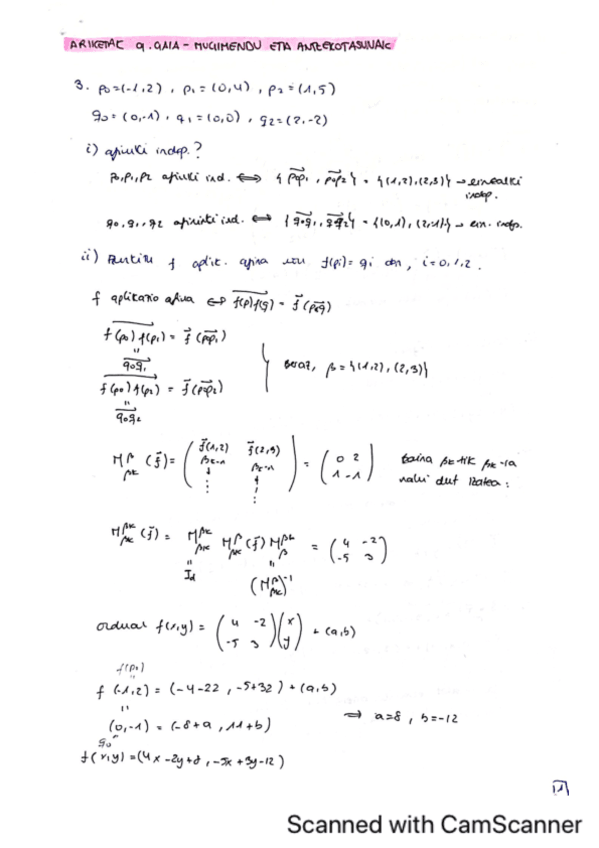 ARIKETAK 9. GAIA - MUGIMENDU ETA ANTZEKOTASUNAK
3. p0=(-1,2), p1=(0,4), p2=(1,5)
q0=(0,-1), q1=(0,0), q2=(2,-2)
i) afinki indep.?
p0,p1,p2 afinki ind. ⟺ {p0p1, p0p2} = {(1,2),(2,3)} → linealki
indep.
q0,q1,q2 afinki ind. ⟺ {q0q1, q0q2} = {(0,1),(2,-1)} → lin. indp.
ii) f aplik. afina f(pi)=qi den, i=0,1,2.
f aplikazio afina ⟺ f(p)f(q) = f(pq)
f(p0)f(p1) = f(p0p1)
q0q1
beraz, β={(1,2),(2,3)}
f(p0)f(p2) = f(p0p2)
q0q2
f(1,2) f(2,3)
M (f) = = (0 2
1 -1) baina βk-tik βk-ra
nahi dut izatea:
M (f) = M M (f) M = (4 -2
-5 3)
Id (M)-1
orduan f(x,y) = (4 -2
-5 3)(x
y) + (a,b)
f(p0)
f(-1,2) = (-4-2·2, -5+3·2) + (a,b)
⟹ a=8, b=-12
(0,-1) = (-8+a, 11+b)
q0
f(x,y)=(4x-2y+8, -5x+3y-12)
Scanned with CamScanner